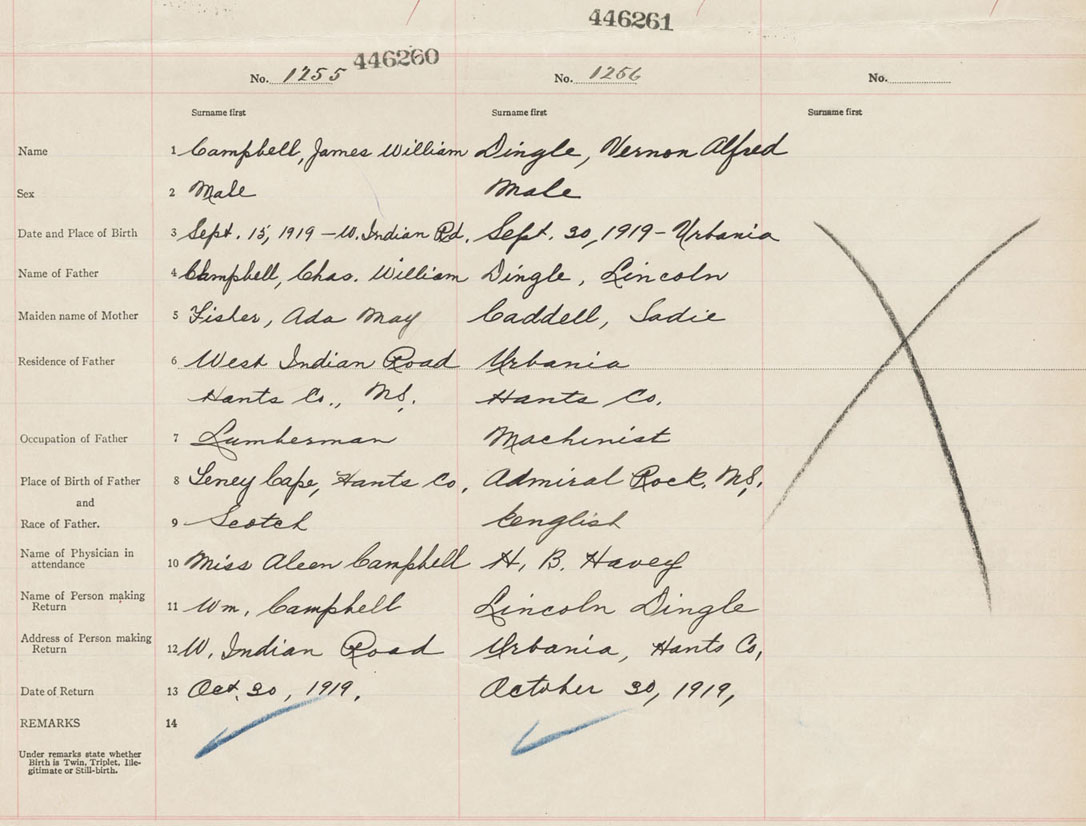 446261
446260
No. 1255 No. 1256 No.
Surname first Surname first Surname first
Name 1 Campbell, James William Dingle, Vernon Alfred
Sex 2 Male Male
Date and Place of Birth 3 Sept. 15, 1919 - W. Indian Rd. Sept. 30, 1919 - Urbania
Name of Father 4 Campbell, Chas. William Dingle, Lincoln
Maiden name of Mother 5 Fisher, Ada May Caddell, Sadie
Residence of Father 6 West Indian Road Urbania
Hants Co., NS. Hants Co.
Occupation of Father 7 Lumberman Machinist
Place of Birth of Father 8 Cape, Hants Co, Admiral Rock, NS.
and
Race of Father. 9 Scotch English
Name of Physician in
attendance 10 Miss Aleen Campbell H. B. Havey
Name of Person making
Return 11 Wm. Campbell Lincoln Dingle
Address of Person making
Return 12 W. Indian Road Urbania, Hants Co,
Date of Return 13 Oct. 30, 1919. October 30, 1919,
REMARKS 14
Under remarks state whether
Birth is Twin, Triplet, Ille-
gitimate or Still-birth.